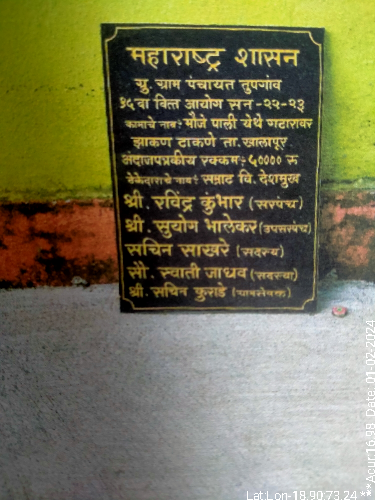 महाराष्ट्र शासन
ग्रु. ग्राम पंचायत तुपगांव
१५वा वित्त आयोग सन-२२-२३
कामाचे नाव:- मौजे पाली येथे गटारावर
झाकण टाकणे ता. खालापूर
अंदाजपत्रकीय रक्कम:- ५०००० रु
ठेकेदाराचे नाव:- सम्राट वि. देशमुख
श्री. रविंद्र कुंभार (सरपंच)
श्री. सुयोग भालेकर (उपसरपंच)
सचिन साखरे (सदस्य)
सौ. स्वाती जाधव (सदस्या)
श्री. सचिन फुराडे (ग्रामसेवक)
Lat Lon-18.90:73.24 ***Acur16.98 Date: 01-02-2024